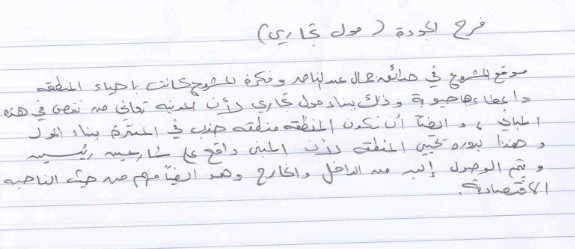 فرح الجودة (مول تجاري)
موقع المشروع في حدائق جمال عبد الناصر وفكرة المشروع كانت بإحياء المنطقة
وإعطاءها حيوية وذلك ببناء مول تجاري لأن المدينة تعاني من نقص في هذه
المباني، وأيضاً أن تكون المنطقة منطقة جذب في المنتزه بناء المول
وهذا بدوره تحيي المنطقة لأن المبنى واقع على شارعين رئيسيين
ويتم الوصول إليه من الداخل والخارج وهذا أيضاً مهم من حيث الناحية
الاقتصادية.